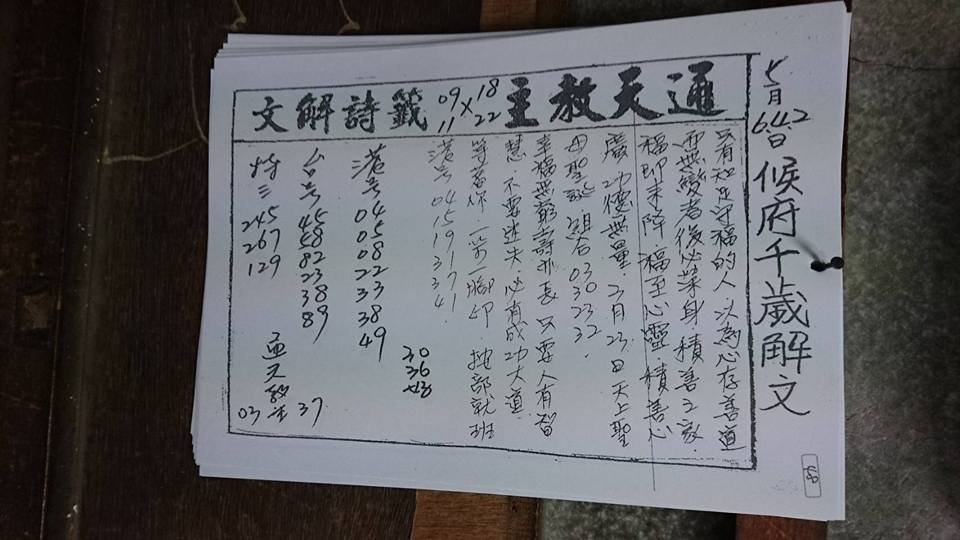 5月
6.4.2日
候府千歲解文
通天教主 18 22 X 09 11 籤詩解文
只有知足守福的人 以為心存善道
而無變者後必榮身 積善之家
福即來降 福至心靈 積善心
廣 功德無量 二月23日天上聖
母聖誕 組合 03 30 23 32
幸福無窮壽亦長 只要人有智
慧 不要迷失 必有成功大道
等著你 一步一腳印 按部就班
港号 04 15 19 31 37 41
港号 04 05 08 22 23 38 49
30 36
台号 45 58 82 23 38 89
特三 245 267 129
03 37